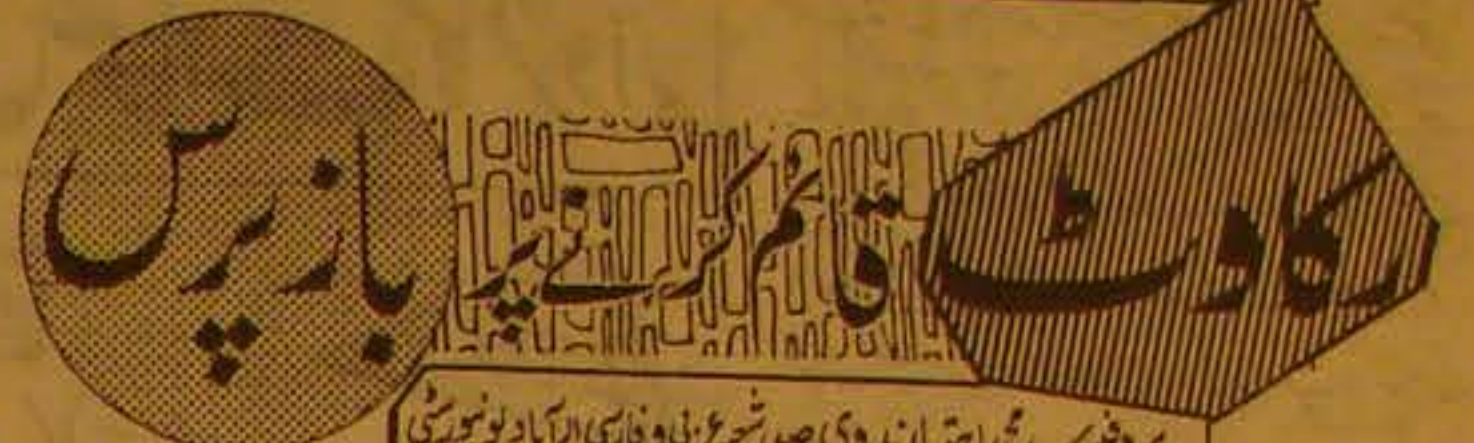 رکاوٹ قائم کرنے پر باز پرس
پروفیسر محمد اجتباء ندوی صدر شعبہ عربی و فارسی الہ آباد یونیورسٹی